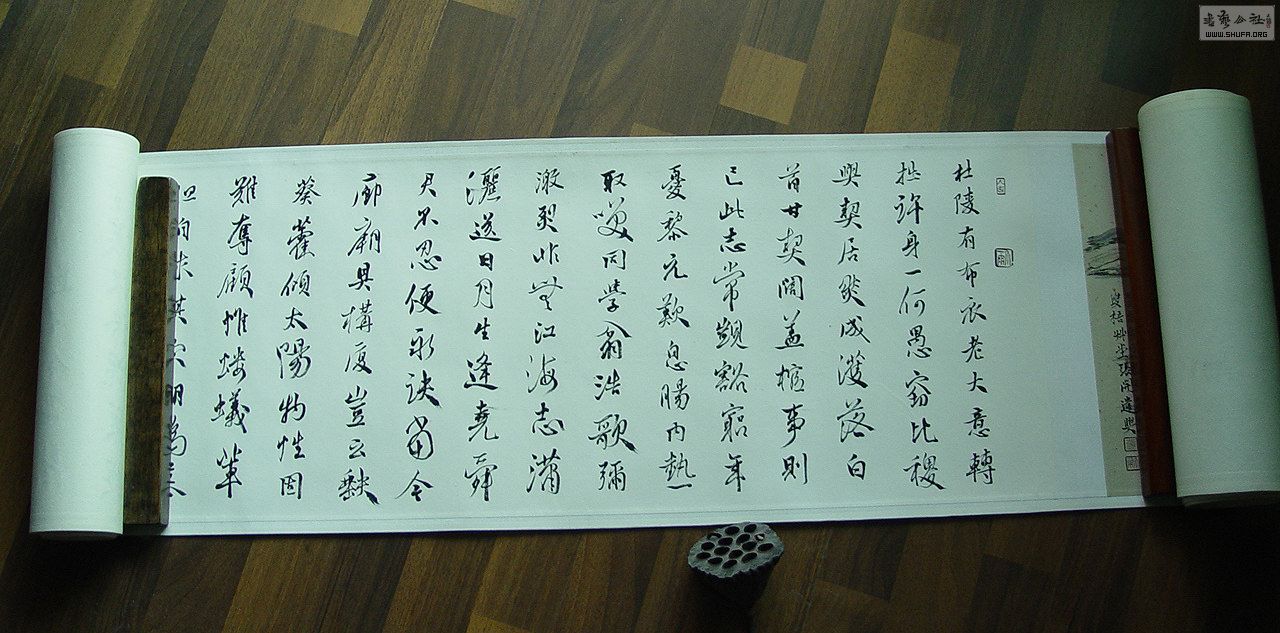 杜陵有布衣老大意轉
拙許身一何愚竊比稷
與契居然成濩落白
首甘契闊蓋棺事則
已此志常覬豁窮年
憂黎元歎息腸內熱
取笑同學翁浩歌彌
激烈非無江海志瀟
灑送日月生逢堯舜
君不忍便永訣當今
廊廟具構厦豈云缺
葵藿傾太陽物性固
難奪顧惟螻蟻輩
但自求其穴胡為慕
書藝公社
WWW.SHUFA.ORG